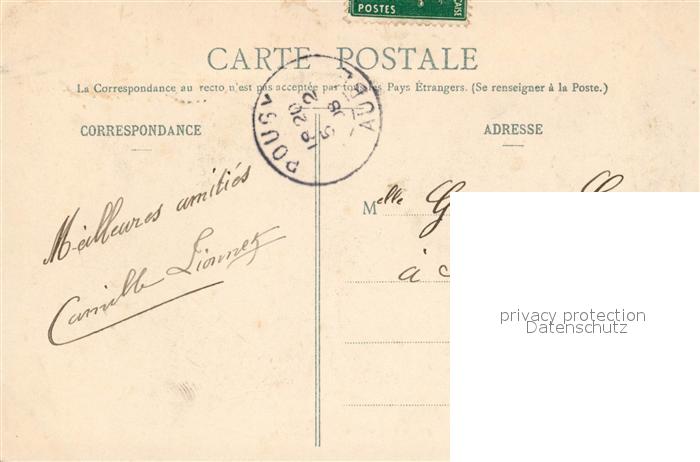 POSTES
CARTE POSTALE
La Correspondance au recto n'est pas acceptée par tous les Pays Étrangers. (Se renseigner à la Poste.)
CORRESPONDANCE
ADRESSE
POUSL
AUBE
18 20
5
2
08
Melle G
à
Meilleures amitiés
Camille Lionnet
privacy protection
Datenschutz